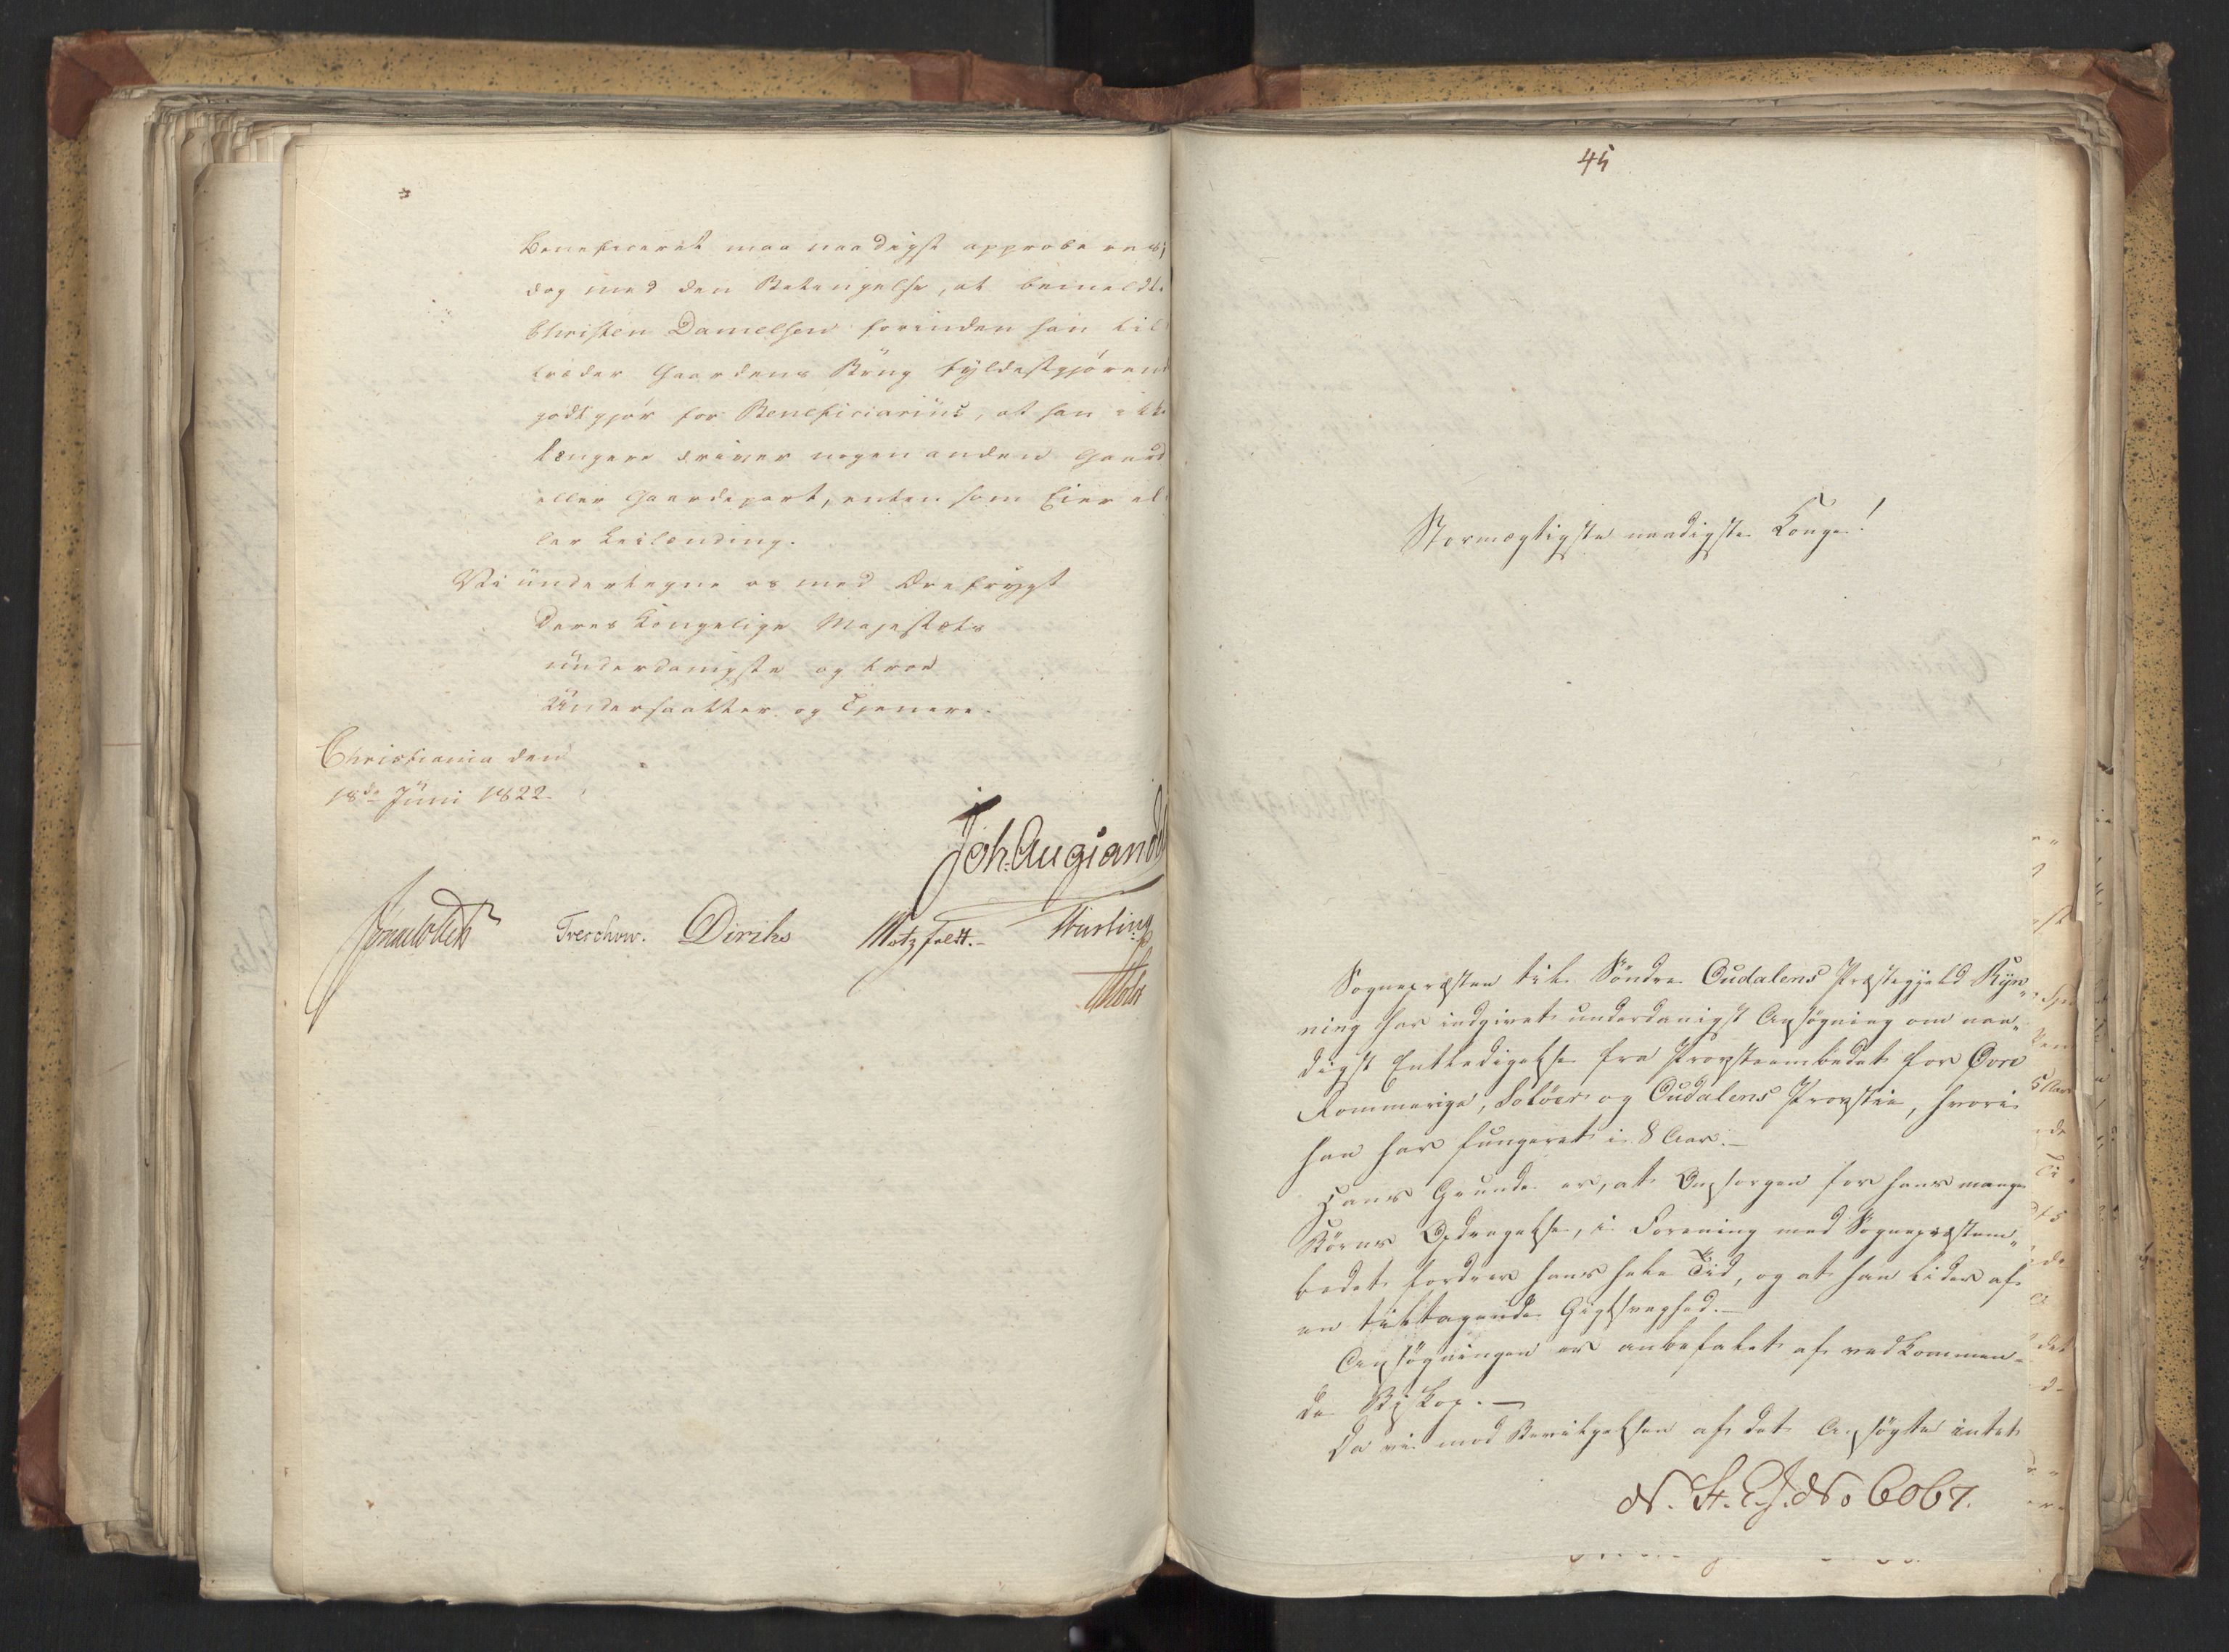 Beneficeret maa naadigst approberes;
dog med den Betingelse, at bemeldte
Christen Danielsen forinden han til
træder Gaardens Brug fyldestgjørend
godtgjør for Beneficiarius, at han ikke
længere driver nogen anden Gaard
eller Gaardepart, enten som Eier el
ler Leilænding.
Vi undertegne os med Ærefrygt
Deres Kongelige Majestæts
underdanigste og troe
Undersaatter og Tjenere.
Christiania den
18de Juni 1822.
Joh. Aug: Sandel
Sommerhielm Treschow. Diriks Motzfeldt. Fasting
Holst
45
Stormægtigste naadigste Konge!
Sognepræsten til Söndre Oudalens Præstegjeld Ryn„
ning har indgivet underdanigst Ansøgning om naa„
digst Entledigelse fra Provsteembedet for Övre
Rommerige, Solöer og Oudalens Provstie, hvori
han har fungeret i 8 Aar.—
Hans Grunde er, at Omsorgen for hans mange
Börns Opdragelse, i Forening med Sognepræstem„
bedet fordrer hans hele Tid, og at han lider af
en tiltagende Gigtsvaghed.—
Ansøgningen er anbefalet af vedkommen-
de Biskop.—
Da vi mod Bevilgelsen af det Ansøgte intet
N. St. E. J. No 6067.